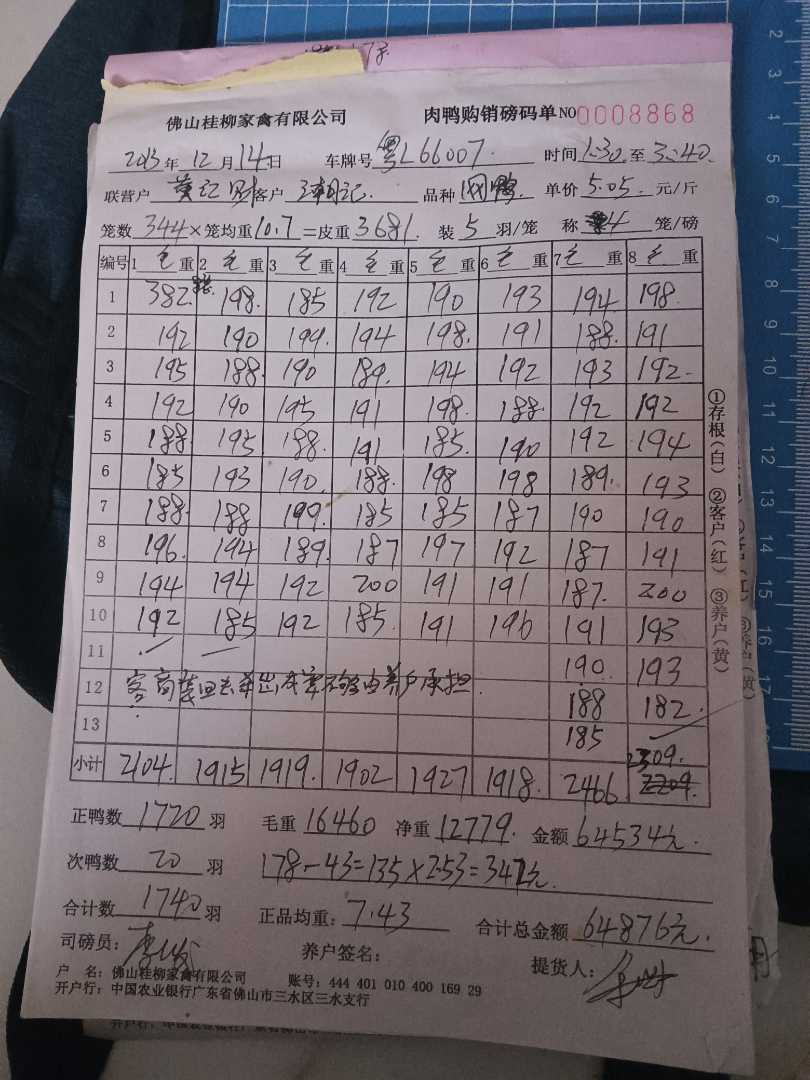 佛山桂柳家禽有限公司 肉鸭购销磅码单 NO 0008868
2013年 12月 14日 车牌号 粤L66007 时间 1:30 至 3:40
联营户 黄 客户 品种 鸭 单价 5.05 元/斤
笼数 344 × 笼均重 10.7 = 皮重 3681. 装 5 羽/笼 称 4 笼/磅
编号 1 毛重 2 毛重 3 毛重 4 毛重 5 毛重 6 毛重 7 毛重 8 毛重
1 382. 198. 185 192 190 193 194 198.
2 192 190 199. 194 198. 191 188. 191
3 195 188. 190 189. 194 192 193 192
4 192 190 195 191 198. 188. 192 192
5 188 195 188. 191 185. 190 192 194
6 185 193 190. 188. 198 198 189. 193
7 188. 188 199. 185 185 187 190 190
8 196. 194 189. 187 197 192 187 191
9 194 194 192 200 191 191 187. 200
10 192 185 192 185. 191 196 191 193
11 190. 193
12 客商 回去 由养户承担. 188 182.
13 185
小计 2104. 1915 1919. 1902 1927 1918. 2466 2309.
正鸭数 1720 羽 毛重 16460 净重 12779. 金额 64534元
次鸭数 20 羽 178-43=135×2.53=342元.
合计数 1740 羽 正品均重: 7.43 合计总金额 64876元.
司磅员: 养户签名: 提货人:
户 名: 佛山桂柳家禽有限公司 账号: 444 401 010 400 169 29
开户行: 中国农业银行广东省佛山市三水区三水支行
①存根(白) ②客户(红) ③养户(黄)